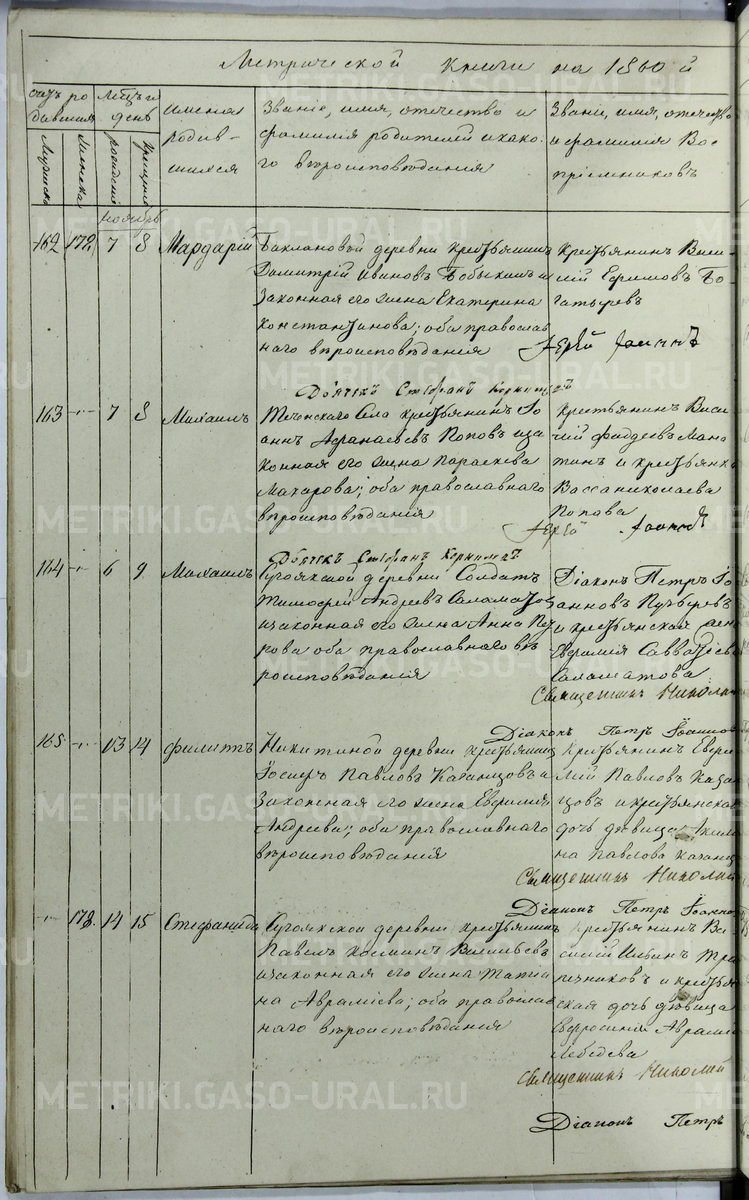 Метрической книги на 1860й
счетъ ро
дившихся
Мужеска
Женска
Мѣцъ и
день
рожденiя
крещенiя
имена
родив-
шихся
Званiе, имя, отечество и
фамилiя родителей и како
го вѣроисповѣданiя
Званiе, имя, отечество
и фамилiя Вос
прiемниковъ
ноябрь
162 172 7 8 Мардарiй
Баклановой деревни крестьянинъ
Димитрiй Ивановъ Бобыкинъ и
законная его жена Екатерина
константинова; оба православ
наго вѣроисповѣданiя
крестьянинъ Васи
лiй Ефимовъ Бо
гатыревъ
Iерей
Дьячекъ Стефанъ
163 7 8 Михаилъ
Теченскаго Села крестьянинъ Iо
аннъ Афанасьевъ Поповъ и за
конная его жена Параскева
Макарова; оба православнаго
вѣроисповѣданiя
крестьянинъ Васи
лiй Фаддеевъ Мана
тинъ и крестьянка
Васса николаева
Попова
Iерей
Дьячекъ Стефанъ
164 6 9 Михаилъ
Сугоякской деревни Солдатъ
Тимофей Андреевъ Саламатов
и законная его жена Анна Пет
рова оба православнаго вѣ
роисповѣданiя
Дiаконъ Петръ Iо
анновъ
и крестьянская жена
Евфимiя Савватiева
Саламатова
Священникъ Николай
Дiаконъ Петръ Iоанновъ
165 13 14 Филиппъ
Никитиной деревни крестьянинъ
Iосифъ Павловъ Казанцовъ и
законная его жена Евфимiя
Андреева; оба православнаго
вѣроисповѣданiя
крестьянинъ Евфи
мiй Павловъ Казан
цовъ и крестьянская
дочь дѣвица Акили
на Павлова казанц
Священникъ Николай
Дiаконъ Петръ Iоанновъ
173 14 15 Стефанида
Сугоякской деревни крестьянинъ
Павелъ косминъ Васильевъ
и законная его жена Татiа
на Аврамiева; оба православ
наго вѣроисповѣданiя
крестьянинъ Ва
силiй Ильинъ Тра
пезниковъ и крестьян
ская дочь дѣвица
Евфросинiя Аврамiе
Лебедева
Священникъ Николай
Дiаконъ Петръ
METRIKI.GASO-URAL.RU